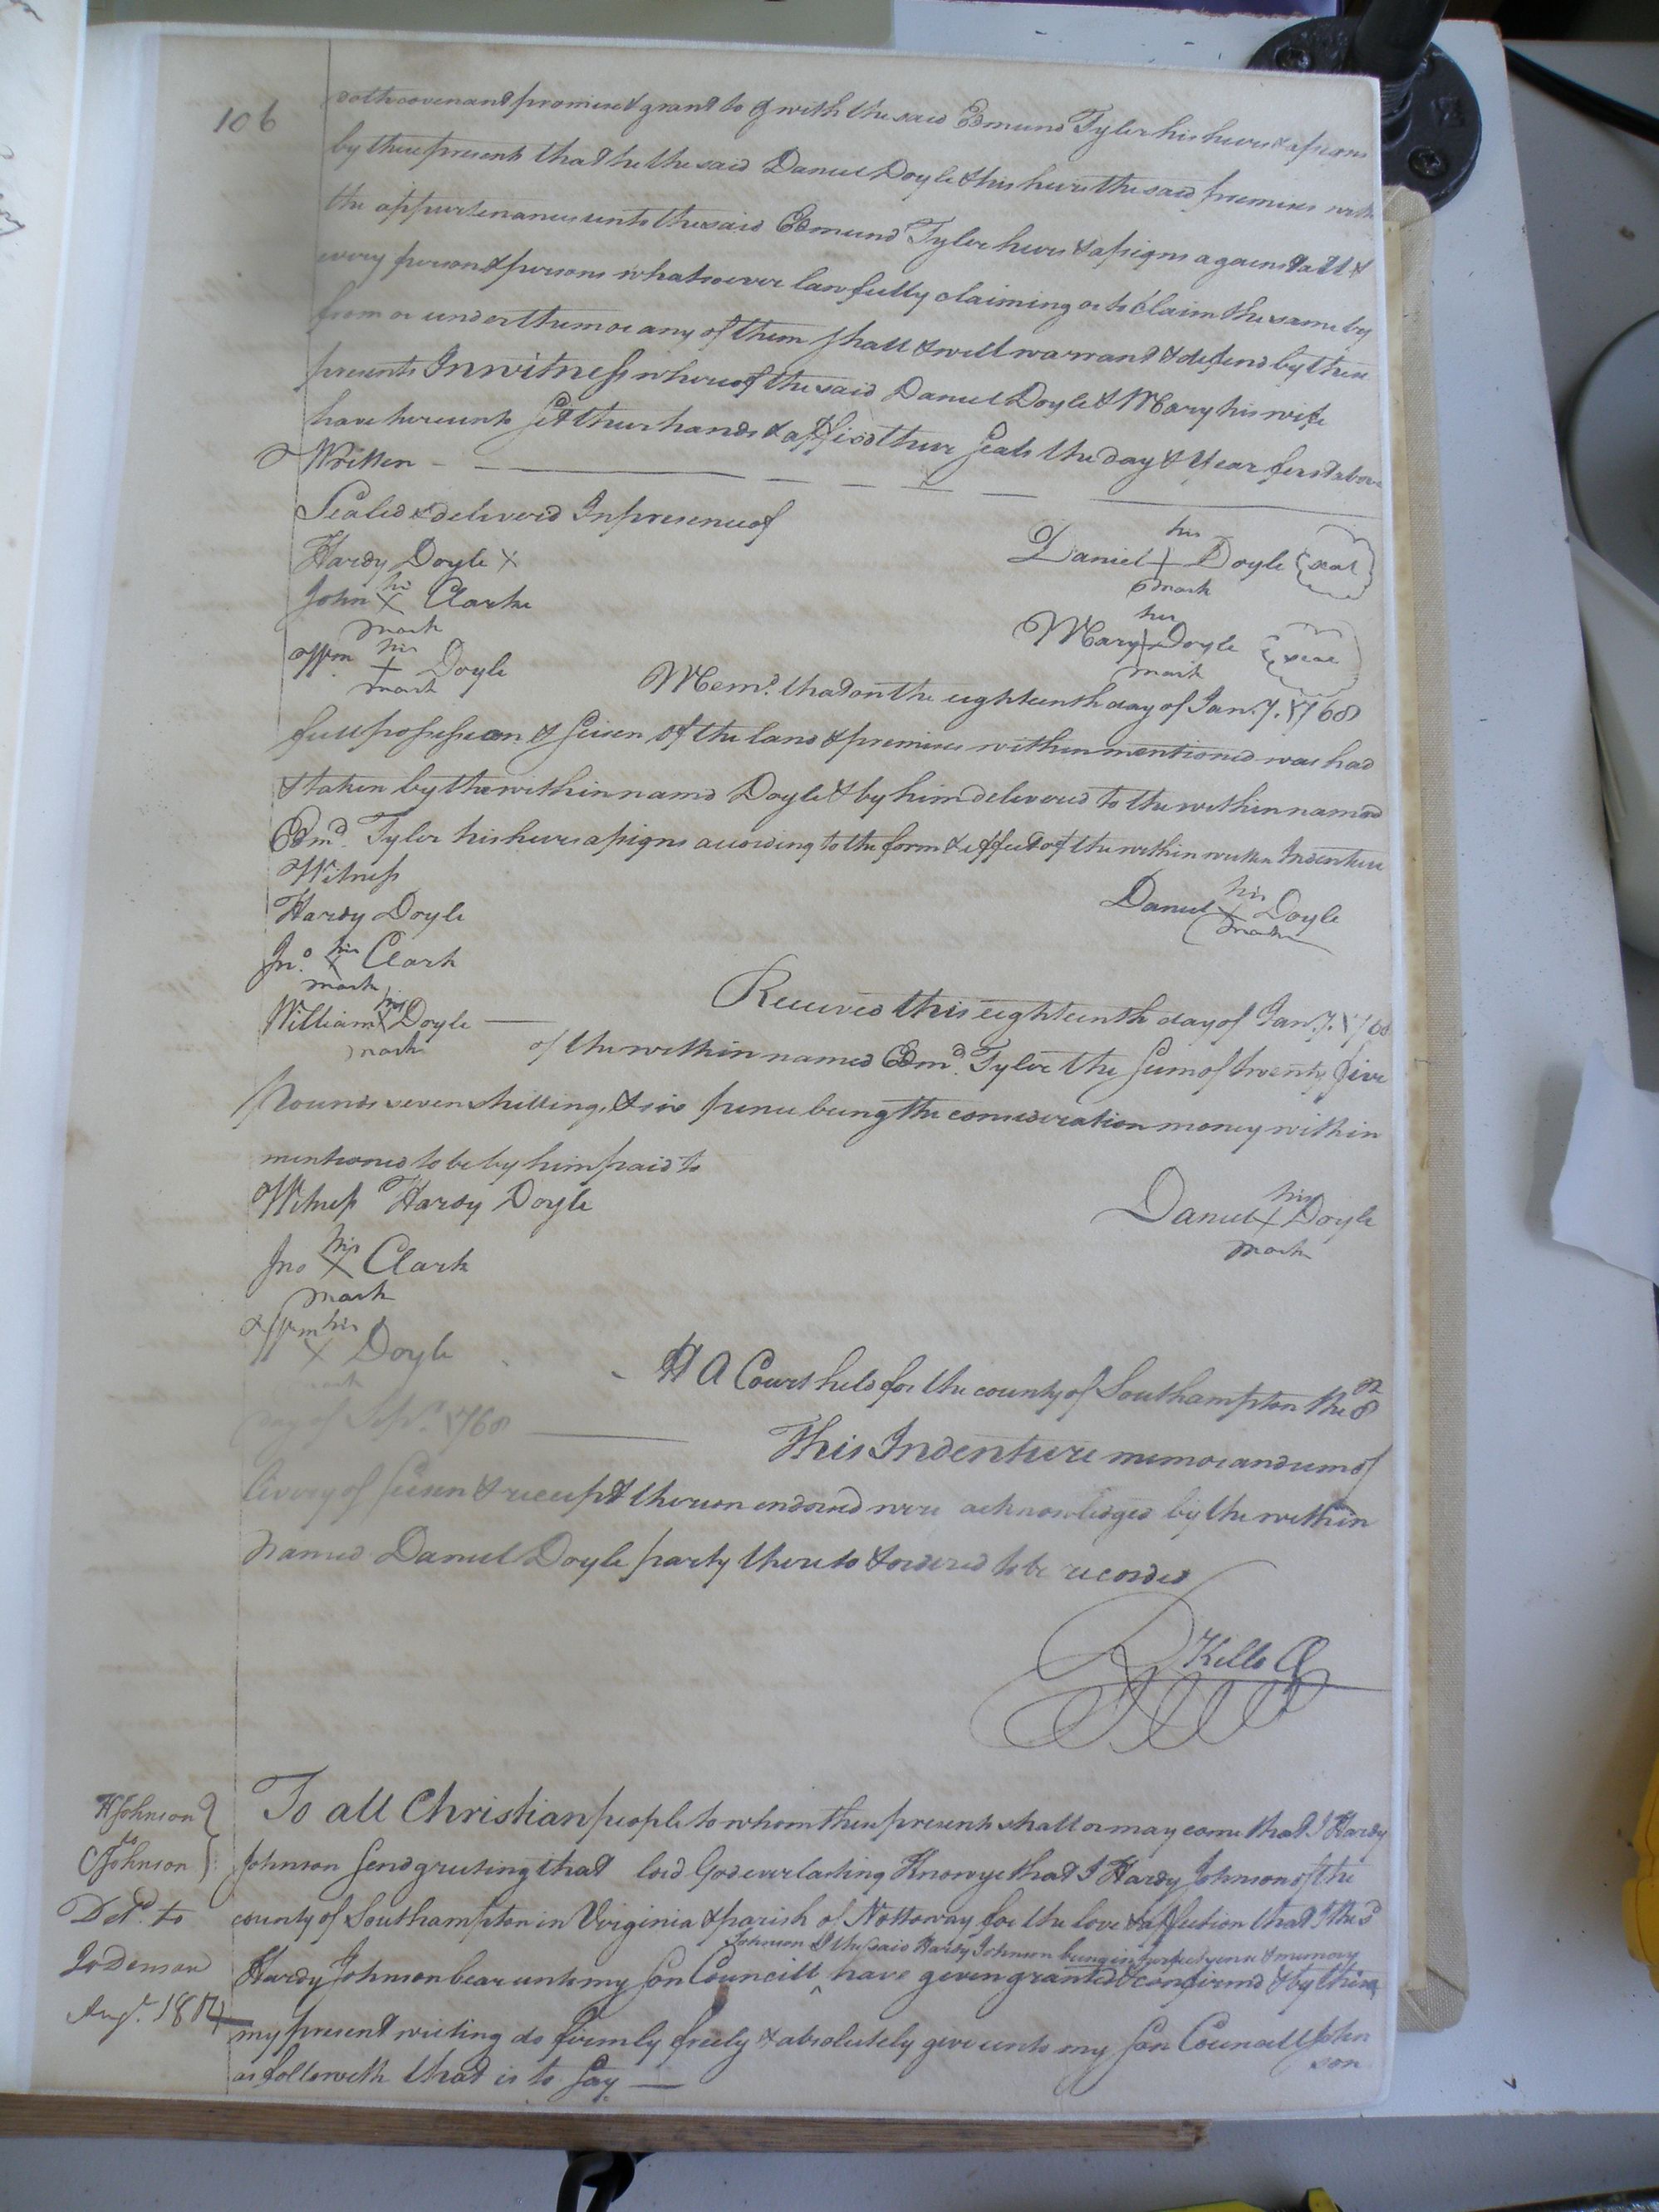 106
doth covenant promise & grant to & with the said Edmund Tyler his heirs & assigns
by these presents that he the said Daniel Doyle & his heirs the said premises with
the appurtenances unto the said Edmund Tyler heirs & assigns against all &
every person & persons whatsoever lawfully claiming or to claim the same by
from or under them or any of them shall & will warrant & defend by these
presents In witness whereof the said Daniel Doyle & Mary his wife
have hereunto Set their hands & affixd their Seals the day & Year first above
Written
Sealed & deliverd In presence of
Hardy Doyle X
John his X Clarke
mark
Wm his X Doyle
mark
Daniel his X Doyle seal
mark
Mary her X Doyle seal
mark
Memd. that on the eighteenth day of Jany. 1768
full possession & Seisen of the land & premises within mentioned was had
& taken by the within namd Doyle & by him delivered to the within named
Edmd. Tyler his heirs assigns according to the form & effect of the within written Indenture
Witness
Hardy Doyle
Jno. his X Clark
mark
William his X Doyle
mark
Daniel his X Doyle
mark
Received this eighteenth day of Jany. 1768
of the within named Edmd. Tyler the Sum of twenty five
Pounds seven shillings & six pence being the consideration money within
mentioned to be by him paid to
Witness Hardy Doyle
Jno his X Clark
mark
Wm his X Doyle
mark
Daniel his X Doyle
mark
At A Court held for the county of Southampton the 8th
day of Sepr. 1768
This Indenture memorandum of
livery of Seisen & receipt thereon endorsd were acknowledged by the within
named Daniel Doyle party thereto & ordered to be recorded
R Kello
H Johnson
to
C Johnson
Deld. to
Jo Denson
Augt. 1817
To all Christian people to whom these presents shall or may come that I Hardy
Johnson Send greeting that lord God everlasting Know ye that I Hardy Johnson of the
county of Southampton in Virginia & parish of Nottoway for the love & affection that I the sd
Johnson I the said Hardy Johnson being in perfect sense & memory
Hardy Johnson bear unto my Son Councill ^ have given granted & confirmd & by these
my present writing do firmly freely & absolutely give unto my Son Councill John
son
as followeth that is to Say